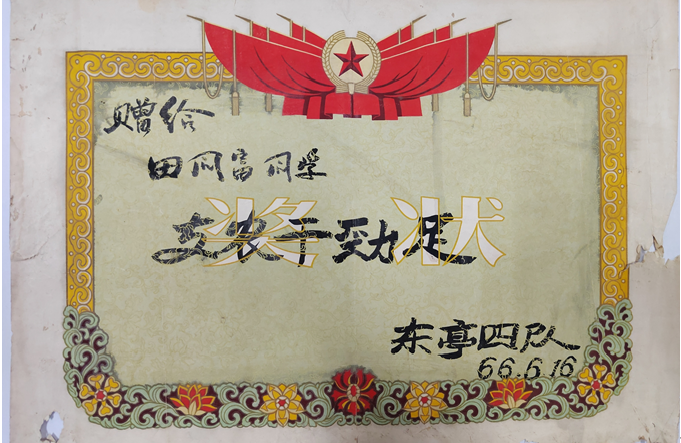 赠给
田同富同学
奖状
支农干劲足
东亭四队
66.6.16